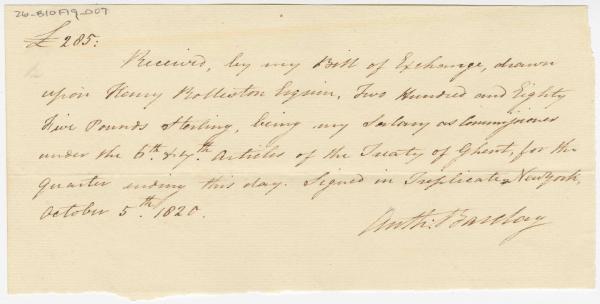 26-B10F19-007
£285:
Received, by my Bill of Exchange, drawn
upon Henry Rolleston Esquire, Two Hundred and Eighty
Five Pounds Sterling, being my Salary as Commissioner
under the 6th & 7th Articles of the Treaty of Ghent, for the
quarter ending this day. Signed in Triplicate, New York,
October 5th 1820.
Anth: Barclay